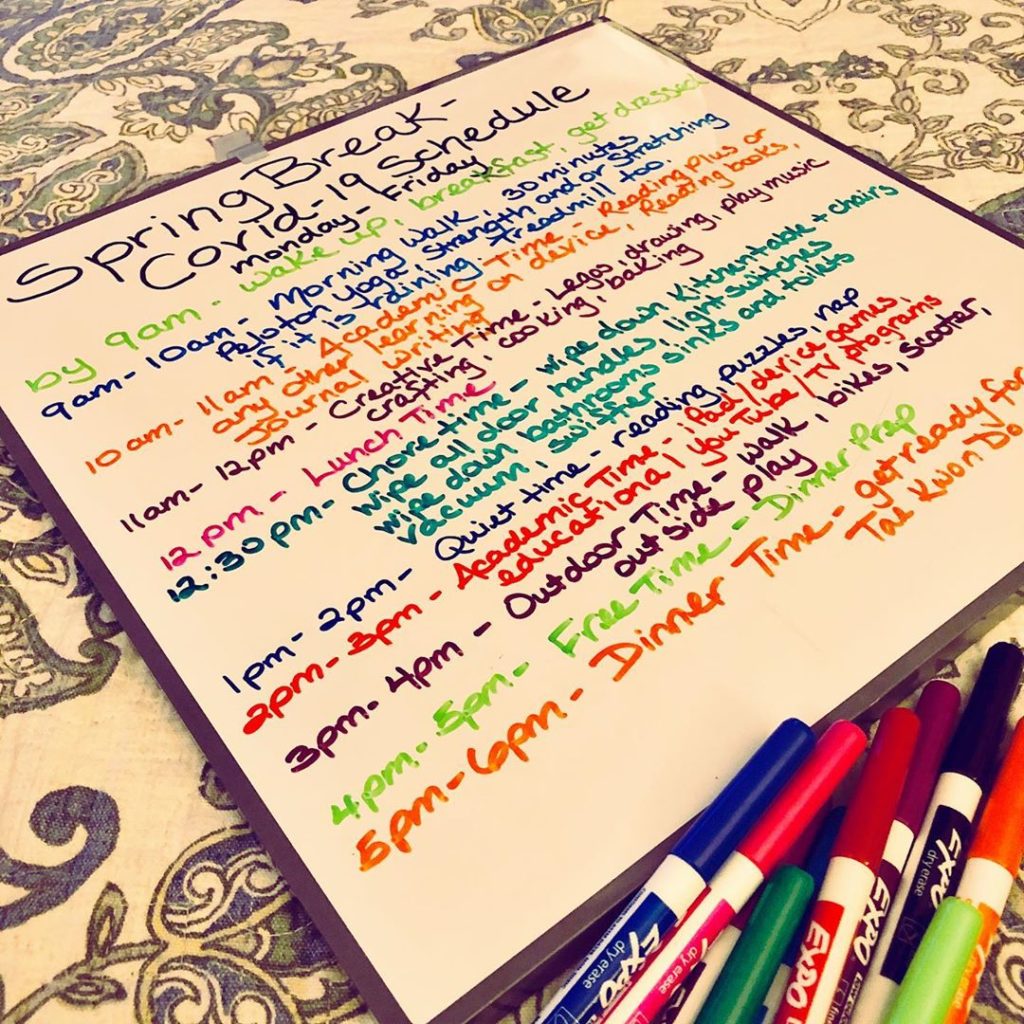 Spring Break -
Covid-19 Schedule
Monday - Friday
by 9am - wake up, breakfast, get dressed
9am - 10am - Morning walk, 30 minutes
Peloton yoga strength and/or stretching
if it is training. Treadmill too.
10am - 11am - Academic Time - Reading Plus or
any other learning on device, Reading books,
Journal writing
11am - 12pm - Creative Time - Legos, drawing, play music
crafting, cooking, baking
12pm - Lunch Time
12:30pm - Chore time - wipe down Kitchen table + chairs
wipe all door handles, light switches
wipe down bathrooms sinks and toilets
vacuum, swiffer
1pm - 2pm - Quiet time - reading, puzzles, nap
2pm - 3pm - Academic Time - iPad/device games,
educational youTube/TV programs
3pm - 4pm - Outdoor Time - walk, bikes, scooter,
outside play
4pm - 5pm - Free Time - Dinner Prep
5pm - 6pm - Dinner Time - get ready for
Tae Kwon Do
EXPO
dry erase
dry erase
EXPO
EXPO
EXPO
dry erase
dry erase